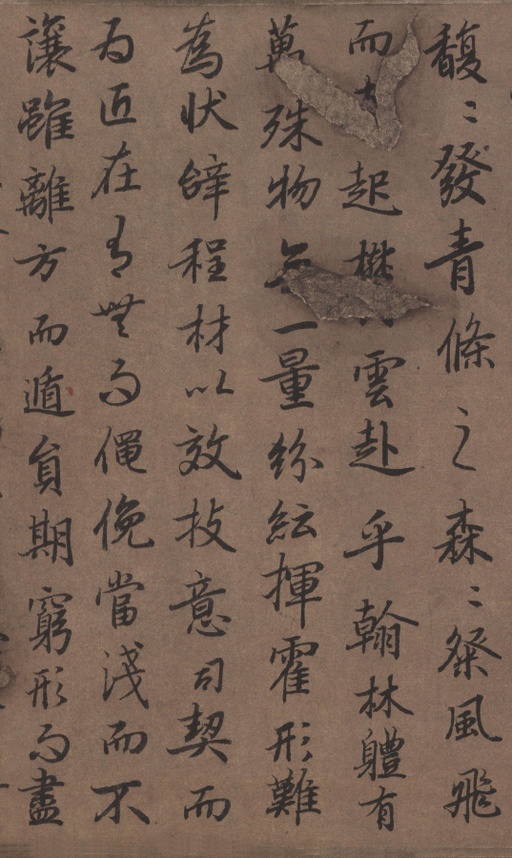 馥〻發青條之森〻粲風飛
而起雲赴乎翰林軆有
萬殊物一量紛紜揮霍形難
為狀辝程材以效技意司契而
為匠在有無而僶俛當淺而不
讓雖離方而遁員期窮形而盡